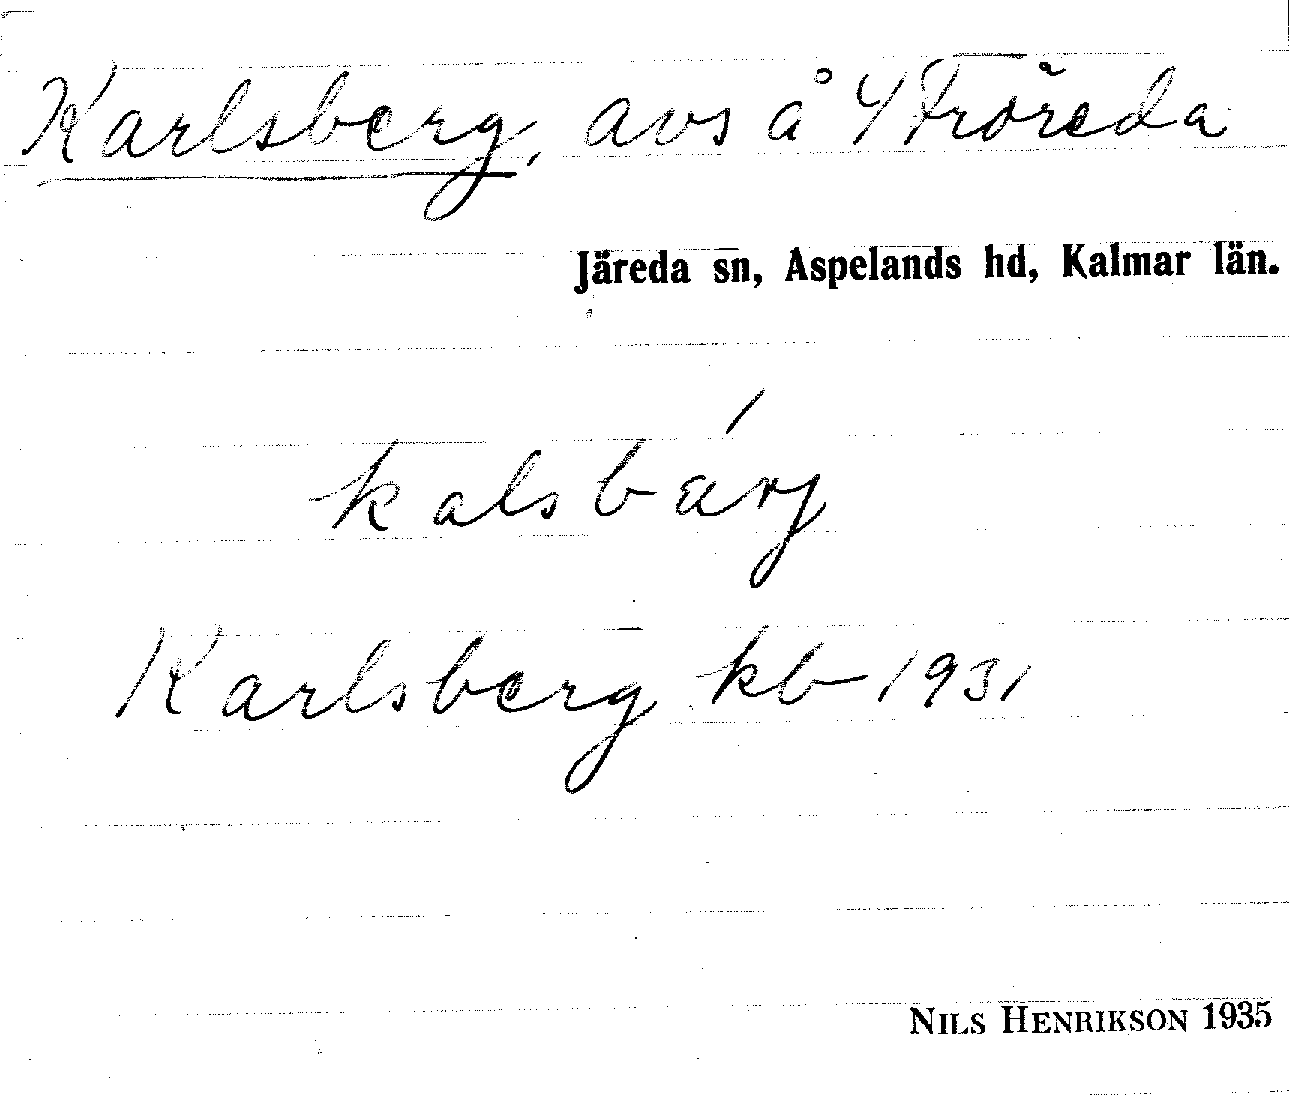 Karlsberg, avs å 4 Fröreda
Järeda sn, Aspelands hd, Kalmar län.
kalsbärj
Karlsberg kb 1931
NILS HENRIKSON 1935